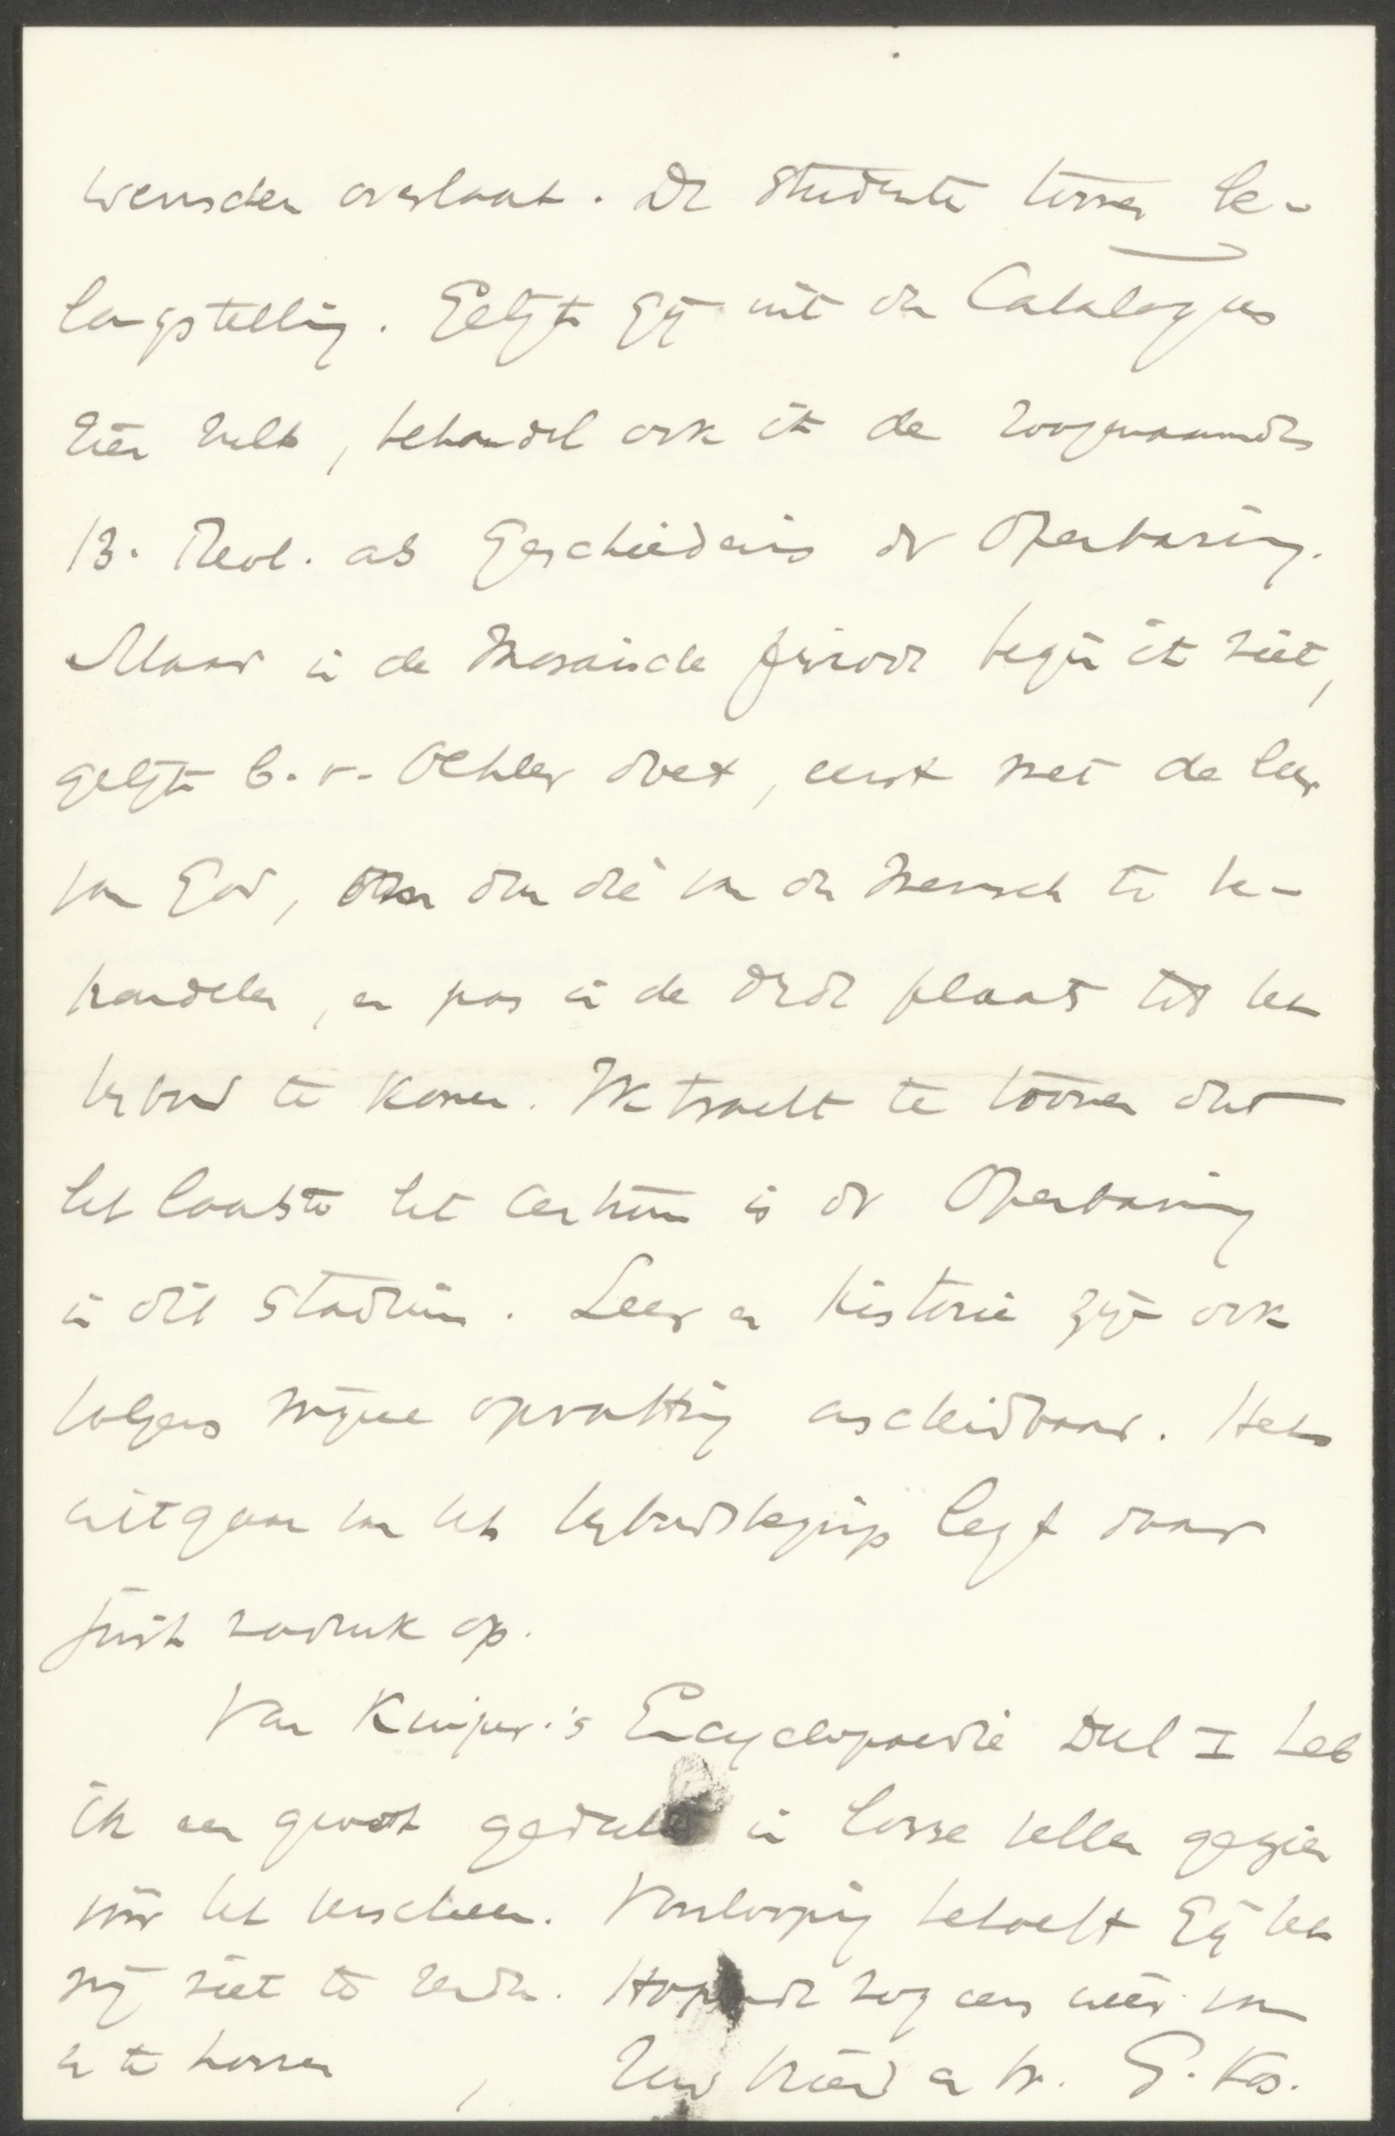 wenschen overlaat. De studenten toonen be-
langstelling. Gelijk Gij uit den Catalogus
zien zult, behandel ook ik de zoogenaamde
B. Theol. als Geschiedenis der Openbaring.
Maar in de Mosaische periode begin ik niet,
gelijk b.v. Oehler doet, eerst met de leer
van God, om dan die van den Mensch te be-
handelen, en pas in de derde plaats tot het
verbond te komen. Ik tracht te toonen dat
het laatste het centrum is der Openbaring
in dit stadium. Leer en historie zijn ook
volgens mijne opvatting onscheidbaar. Het
uitgaan van het verbondsbegrip legt daar
juist nadruk op.
Van Kuijper's Encyclopaedie Deel I heb
ik een groot gedeelte in losse vellen gezien
vóór het verscheen. Voorloopig behoeft Gij het
mij niet te zenden. Hopende nog eens weer van
U te hooren, Uw vriend en br. G. Vos.